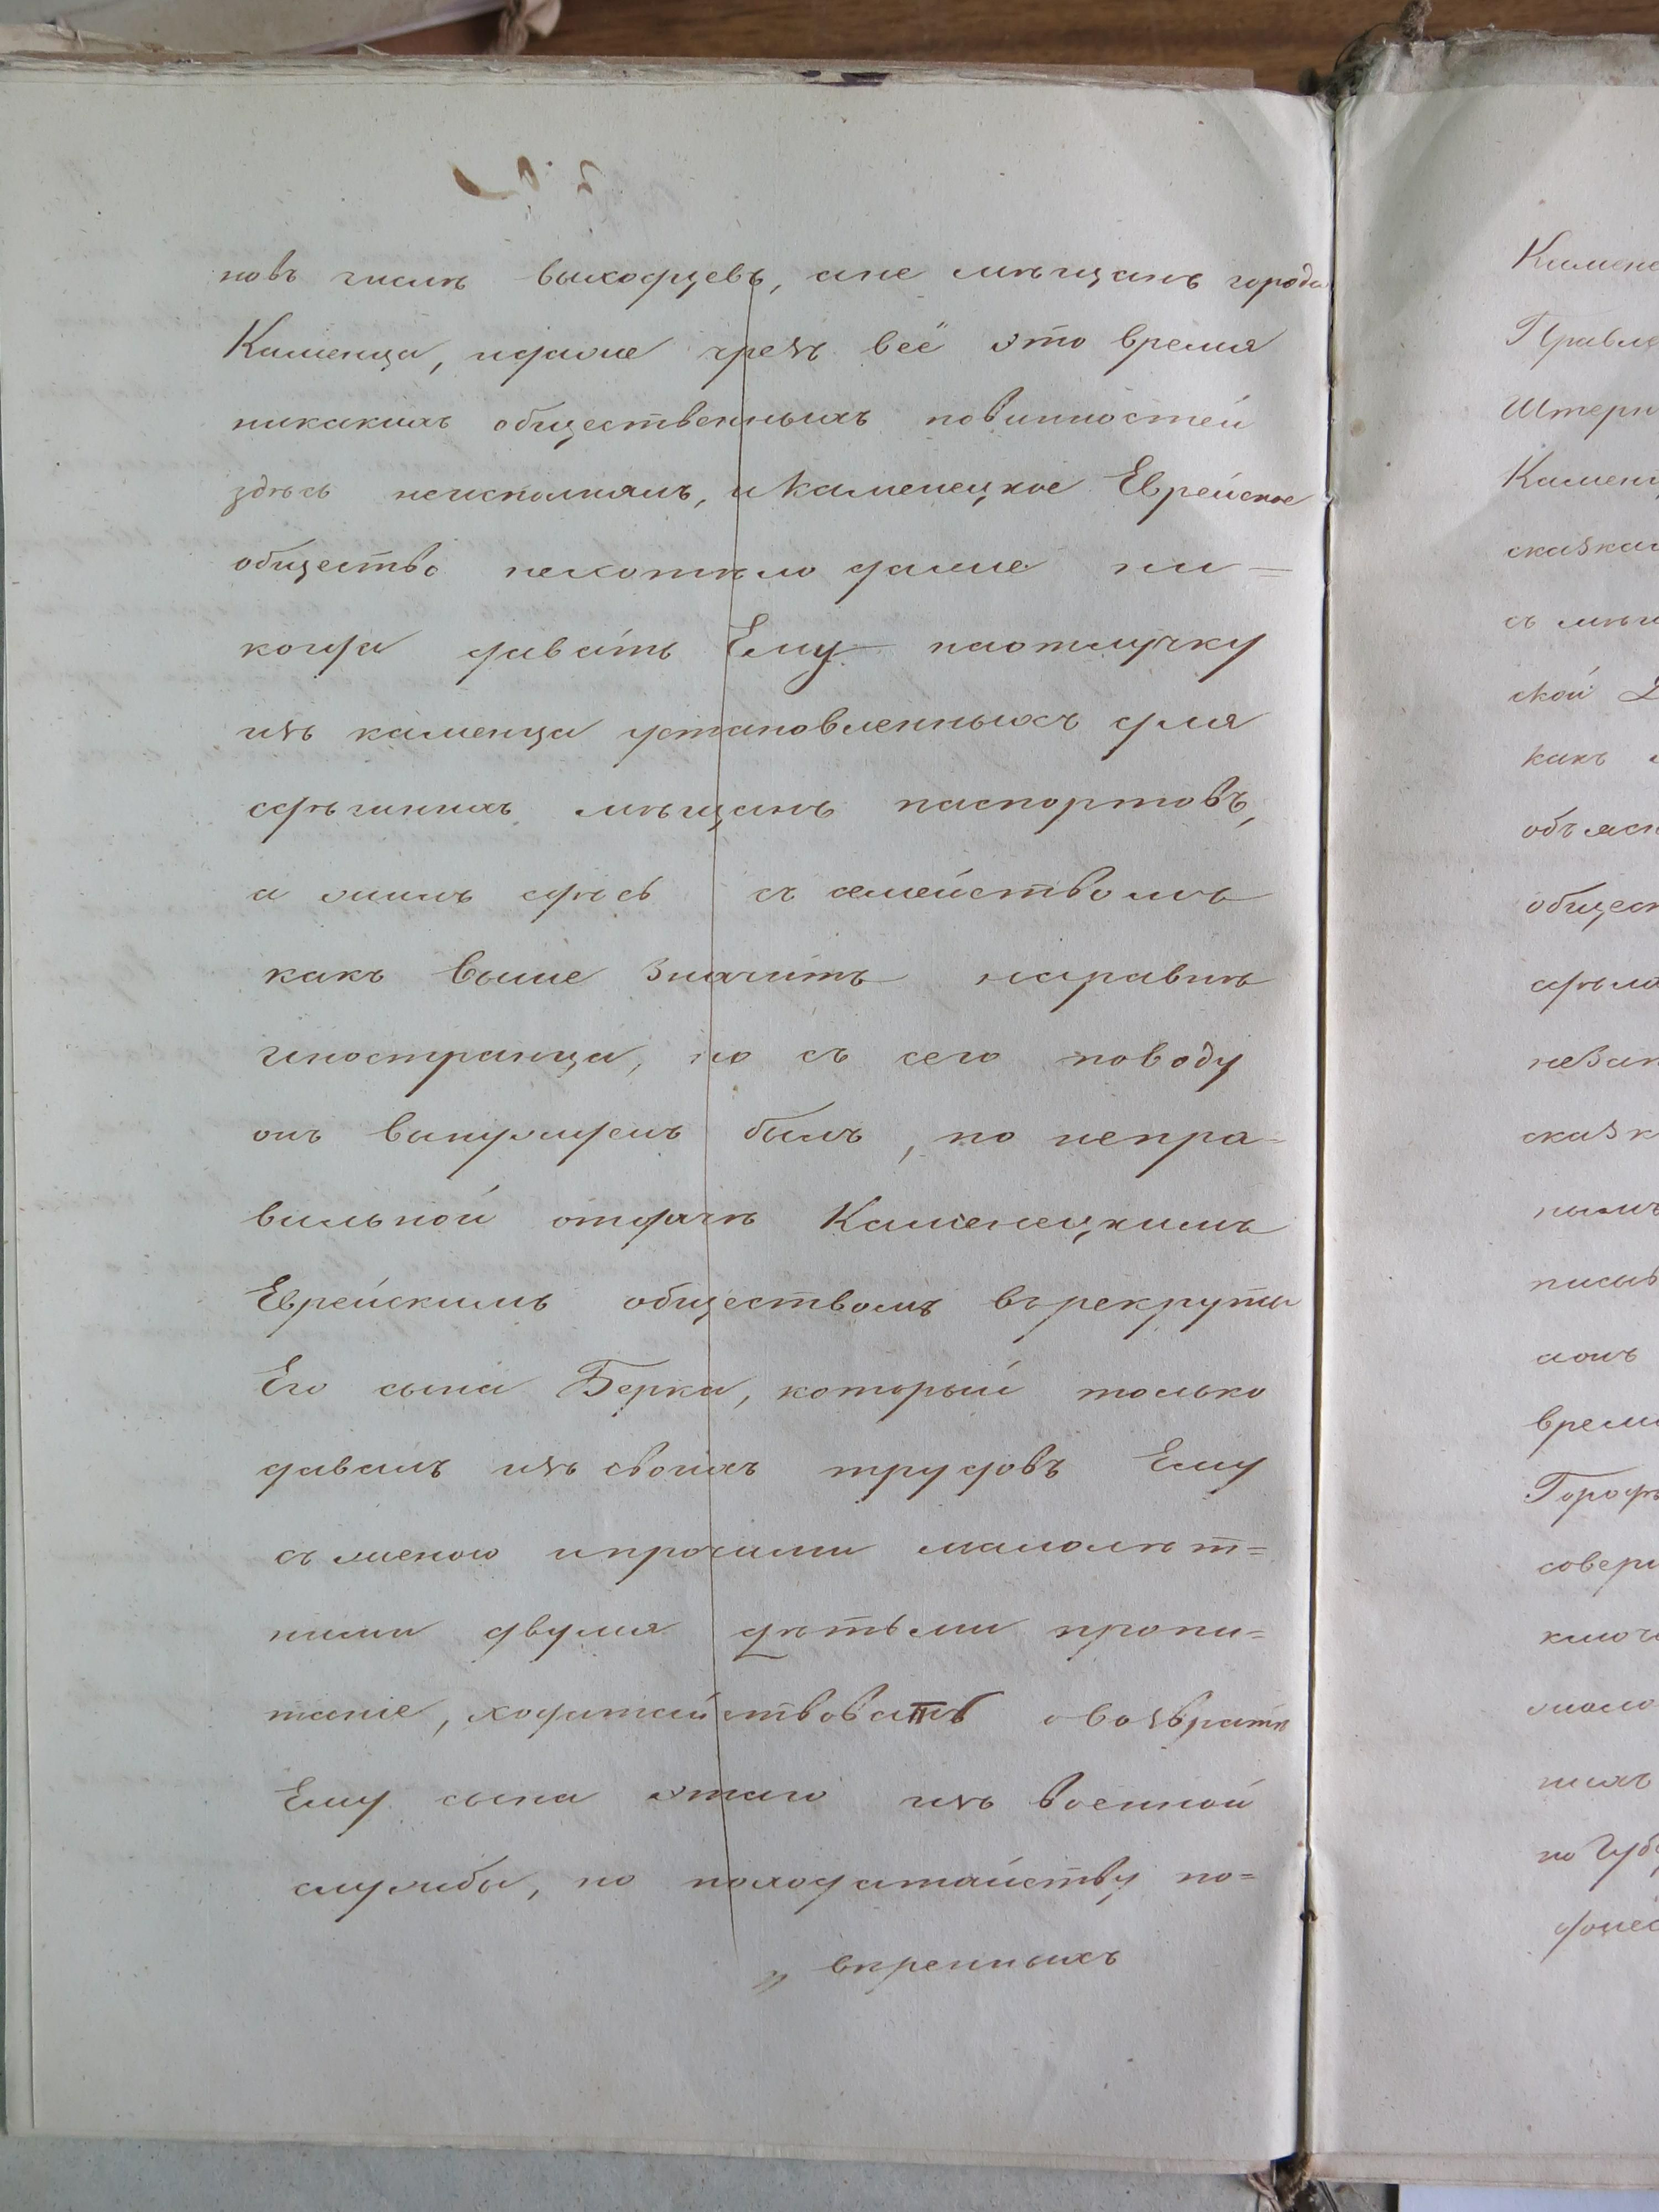 новъ числѣ выходцевъ, ане мѣщанъ города
Каменца, идаже чрезъ всё это время
никакихъ общественныхъ повинностей
здѣсь неисполнялъ, и Каменецкое Еврейское
общество нехотѣло даже ни=
когда давать Ему наотлучку
изъ каменца установленныхъ для
здѣшнихъ мѣщанъ паспортовъ,
а жилъ здѣсь съ семействомъ
какъ выше значитъ наравнѣ
иностранца, но съ сего поводу
онъ вынужденъ былъ, по непра=
вильной отдачѣ Каменецкимъ
Еврейскимъ обществомъ върекруты
Его сына Берка, который только
давалъ изъ своихъ трудовъ Ему
съ женою ипрочими малолѣт=
ними двумя дѣтьми пропи=
таніе, ходатайствовать овозвратѣ
Ему сына этаго изъ военной
службы, но походатайству по=
„ вѣренныхъ
Камене
Правле
Штерн
Каменц
сказкам
съ мѣщ
ской
какъ
объясн
общест
сдѣла
сказк
нымъ
писыв
время
Городѣ
совери
ключ
около
нихъ
но Губ
донес